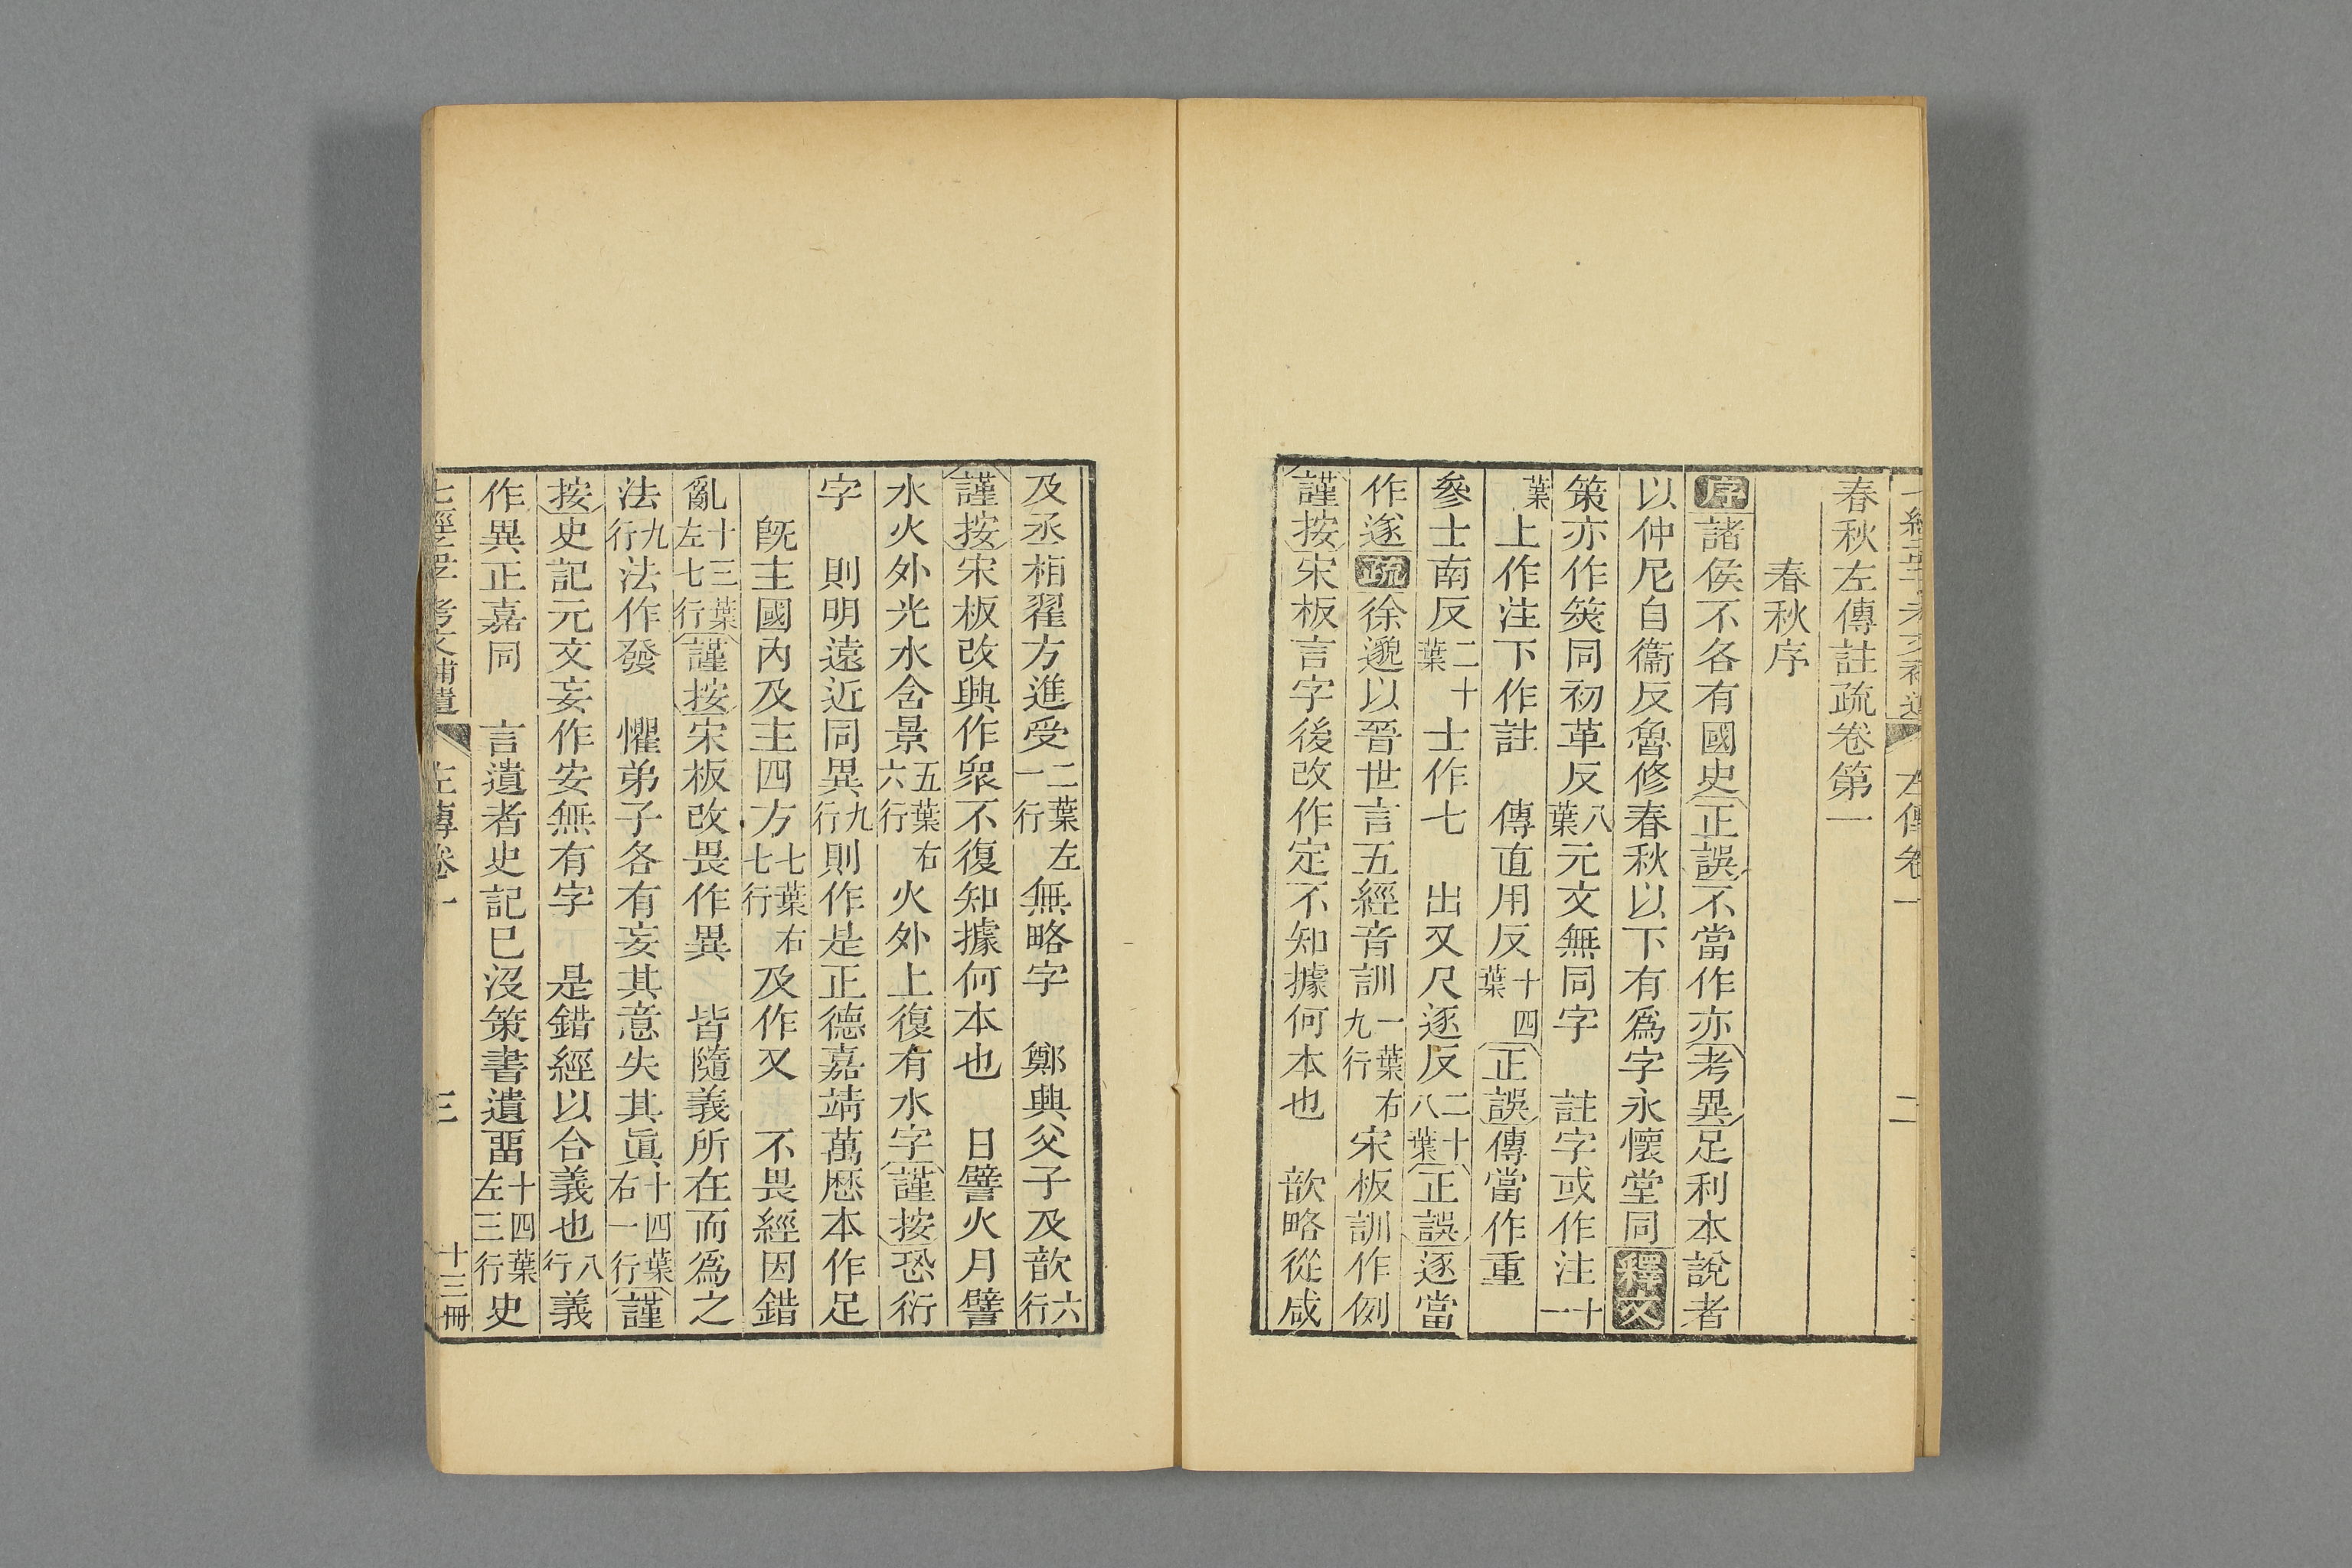 春秋左傳註疏卷第一
春秋序
序諸侯不各有國史正誤不當作亦考異足利本說者
以仲尼自衞反魯修春秋以下有爲字永懷堂同釋文
策亦作筴同初革反八葉元文無同字　註字或作注十一
葉上作注下作註　傳直用反十四葉正誤傳當作重
參士南反二十葉士作七　出叉尺逐反二十八葉正誤逐當
作遂疏徐邈以晉世言五經音訓一葉右九行宋板訓作例
謹按宋板言字後改作定不知據何本也　歆略從咸
及丞相翟方進受二葉左一行無略字　鄭興父子及歆六行
謹按宋板改興作衆不復知據何本也　日譬火月譬
水火外光水含景五葉右六行火外上復有水字謹按恐衍
字　則明遠近同異九行則作是正德嘉靖萬曆本作足
旣主國內及主四方七葉右七行及作又　不畏經因錯
亂十三葉左七行謹按宋板改畏作異　皆隨義所在而爲之
法九行法作發　懼弟子各有妄其意失其眞十四葉右一行謹
按史記元文妄作安無有字　是錯經以合義也八行義
作異正嘉同　言遺者史記已沒策書遺畱十四葉左三行史
左傳卷一
三
十三冊